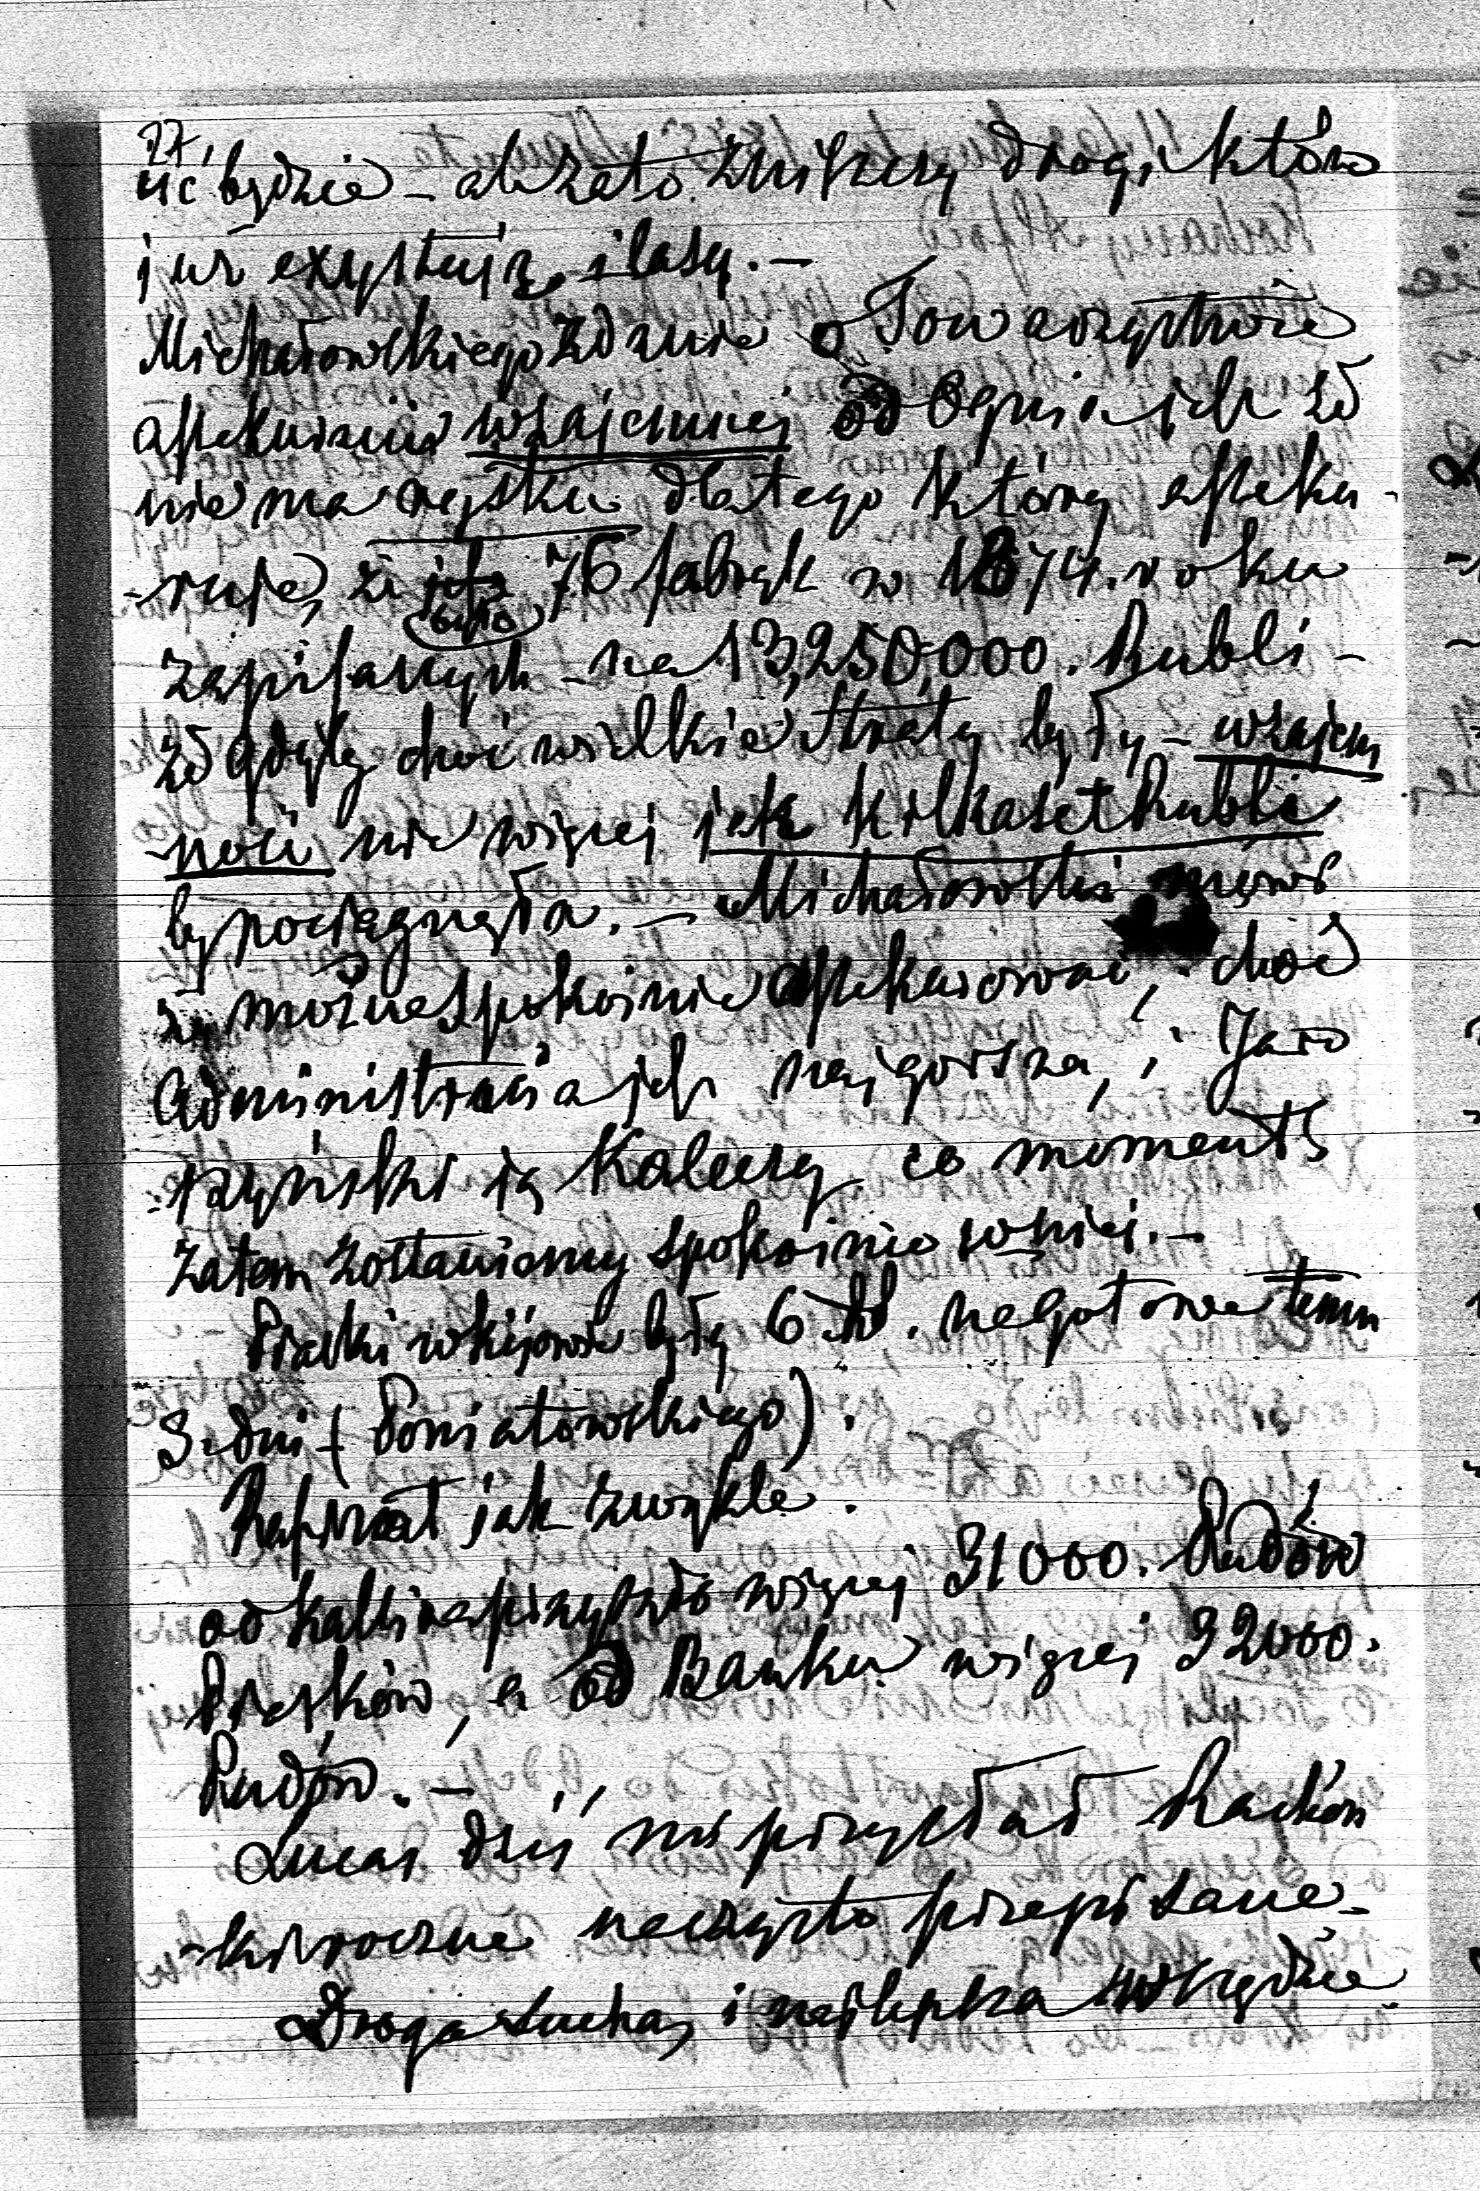 27,
uć będzie – ale zato zniszczy drogi które
już exystują, i lasy. –
Michałowskiego zdanie o Towarzystwie
assekuracii wzajemnej od Ognia jest że
nie ma rysku dla tego który asseku-
-ruje, że było 76 fabryk w 1874. roku
zapisanych – na 13,250,000. Rubli –
że gdyby choć wielkie straty były – wzajem
-ność nie więcej jak kilkaset Rubli
by pociągnęła. – Michałowski mówi
że można spokojnie assekurować, choć
administracia jest najgorsza, i Jaro
-szyński ją Kaleczy co moment
Zatem zostawiamy spokojnie w niej. –
Piaski w Kijowie były 6 na gotowe temu
3. dni – (Poniatowskiego).
Rafinat jak zwykle.
od Kalli przyszło więcej 31000. Pudów
Piasków, a od Banku więcej 32000.
Pudów. –
Lucas dziś mi przysłał Rachun
-ki roczne na czysto przepisane –
Droga sucha, i najlepsza wszędzie